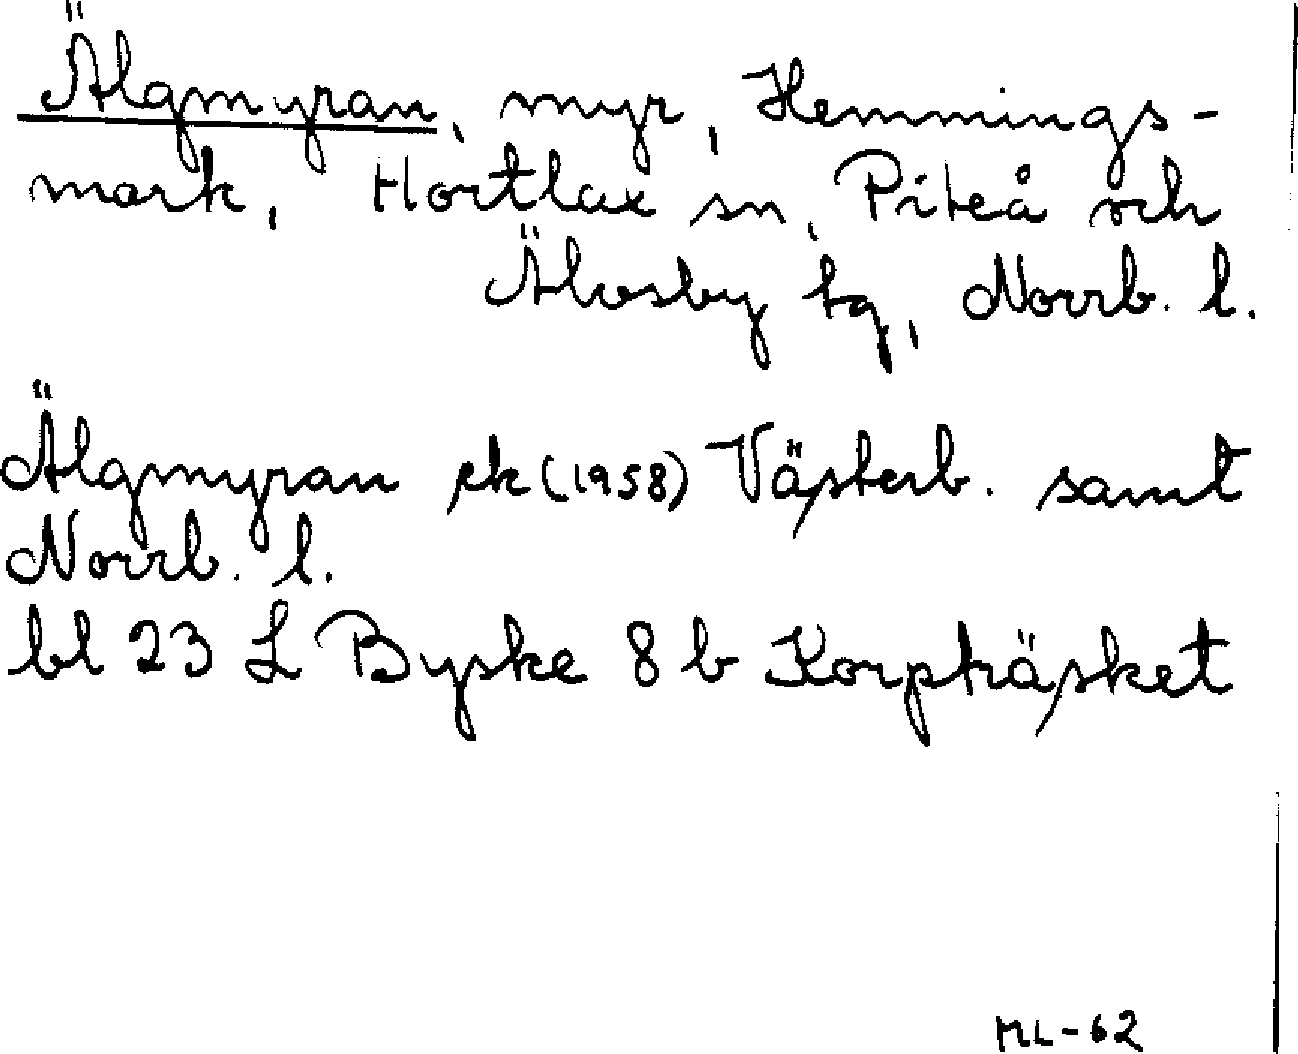 Älgmyran, myr, Hemmings-
mark, Hortlax sn, Piteå och
Älvsby tg, Norrb. l.
Älgmyran ek (1958) Västerb. samt
Norrb. l.
bl 23 L Byske 8 b Korpträsket
ML-62